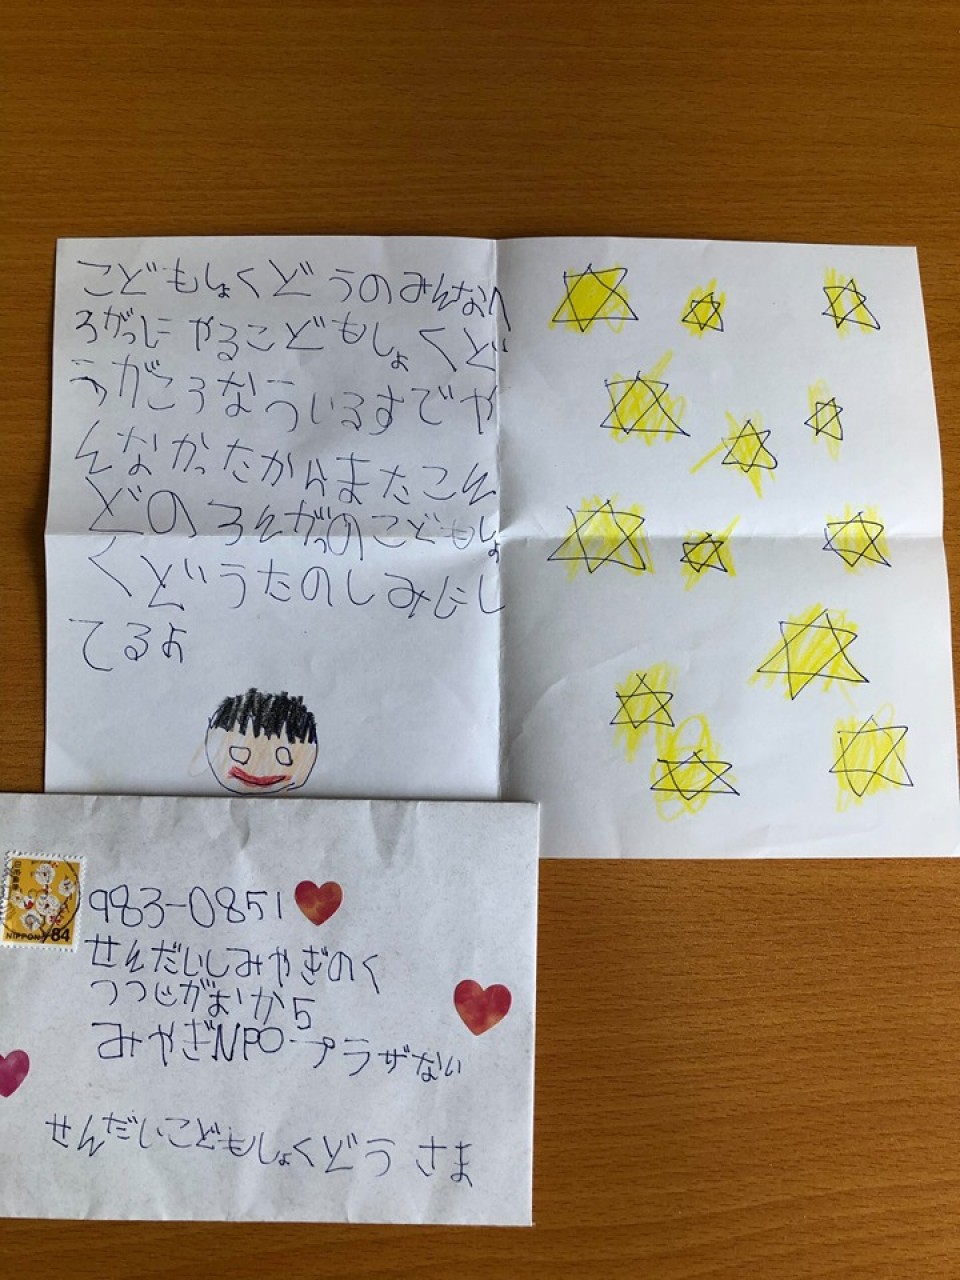 こどもしょくどうのみんなへ
ろがつにやるこどもしょくど
うがころなういるすでや
んなかったかんまたこん
どのろくがつのこどもしょ
くどうたのしみにし
てるよ
NIPPON 84
983-0851
せんだいしみやぎのく
つつじがおか5
みやぎNPOプラザない
せんだいこどもしょくどう さま